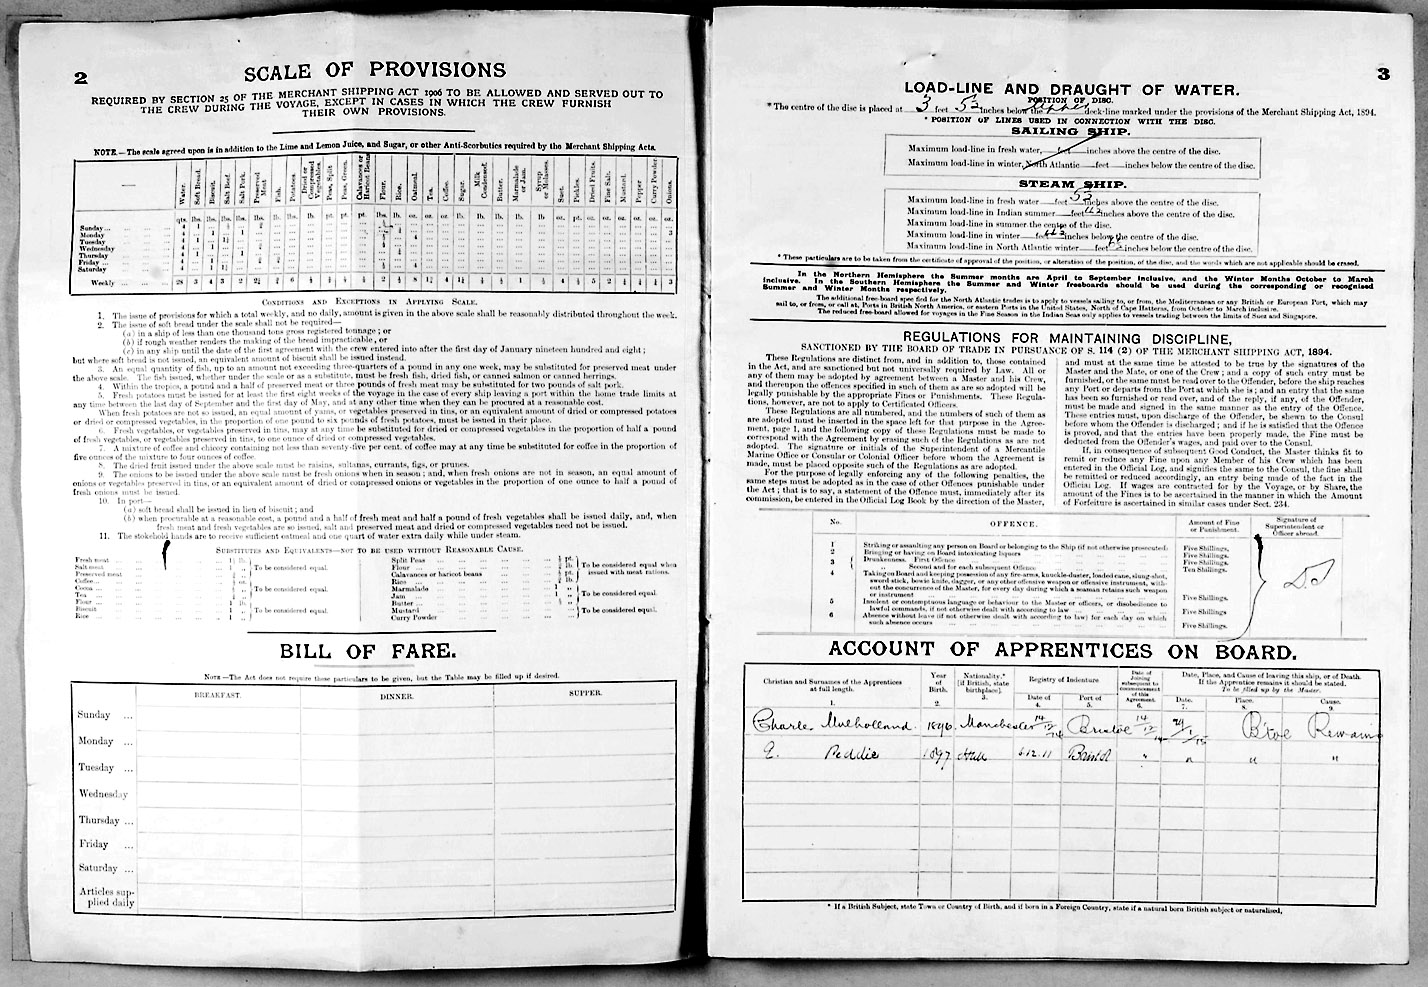 2
SCALE OF PROVISIONS
REQUIRED BY SECTION 25 OF THE MERCHANT SHIPPING ACT 1906 TO BE ALLOWED AND SERVED OUT TO
THE CREW DURING THE VOYAGE, EXCEPT IN CASES IN WHICH THE CREW FURNISH
THEIR OWN PROVISIONS.
NOTE.—The scale agreed upon is in addition to the Lime and Lemon Juice, and Sugar, or other Anti-Scorbutics required by the Merchant Shipping Acts.
Water. Soft Bread. Biscuit. Salt Beef. Salt Pork. Preserved Meat. Fish. Potatoes. Dried or Compressed Vegetables. Peas, Split Peas, Green. Calavances or Haricot Beans Flour. Rice. Oatmeal. Tea. Coffee. Sugar. Milk Condensed. Butter. Marmalade or Jam. Syrup or Molasses. Suet. Pickles. Dried Fruits. Fine Salt. Mustard. Pepper Curry Powder Onions.
qts. lbs. lbs. lbs. lbs. lbs. lbs. lbs. lb. pt. pt. pt. lbs. lb. oz. oz. oz. lb. lb. lb. lb. lb oz. pt. oz. oz. oz. oz. oz. oz.
Sunday...
Monday
Tuesday
Wednesday
Thursday
Friday ...
Saturday
Weekly
CONDITIONS AND EXCEPTIONS IN APPLYING SCALE.
1. The issue of provisions for which a total weekly, and no daily, amount is given in the above scale shall be reasonably distributed throughout the week.
2. The issue of soft bread under the scale shall not be required—
(a) in a ship of less than one thousand tons gross registered tonnage; or
(b) if rough weather renders the making of the bread impracticable, or
(c) in any ship until the date of the first agreement with the crew entered into after the first day of January nineteen hundred and eight;
but where soft bread is not issued, an equivalent amount of biscuit shall be issued instead.
3. An equal quantity of fish, up to an amount not exceeding three-quarters of a pound in any one week, may be substituted for preserved meat under
the above scale. The fish issued, whether under the scale or as a substitute, must be fresh fish, dried fish, or canned salmon or canned herrings.
4. Within the tropics, a pound and a half of preserved meat or three pounds of fresh meat may be substituted for two pounds of salt pork.
5. Fresh potatoes must be issued for at least the first eight weeks of the voyage in the case of every ship leaving a port within the home trade limits at
any time between the last day of September and the first day of May, and at any other time when they can be procured at a reasonable cost.
When fresh potatoes are not so issued, an equal amount of yams, or vegetables preserved in tins, or an equivalent amount of dried or compressed potatoes
or dried or compressed vegetables, in the proportion of one pound to six pounds of fresh potatoes, must be issued in their place.
6. Fresh vegetables, or vegetables preserved in tins, may at any time be substituted for dried or compressed vegetables in the proportion of half a pound
of fresh vegetables, or vegetables preserved in tins, to one ounce of dried or compressed vegetables.
7. A mixture of coffee and chicory containing not less than seventy-five per cent. of coffee may at any time be substituted for coffee in the proportion of
five ounces of the mixture to four ounces of coffee.
8. The dried fruit issued under the above scale must be raisins, sultanas, currants, figs, or prunes.
9. The onions to be issued under the above scale must be fresh onions when in season; and, when fresh onions are not in season, an equal amount of
onions or vegetables preserved in tins, or an equivalent amount of dried or compressed onions or vegetables in the proportion of one ounce to half a pound of
fresh onions must be issued.
10. In port—
(a) soft bread shall be issued in lieu of biscuit; and
(b) when procurable at a reasonable cost, a pound and a half of fresh meat and half a pound of fresh vegetables shall be issued daily, and, when
fresh meat and fresh vegetables are so issued, salt and preserved meat and dried or compressed vegetables need not be issued.
11. The stokehold hands are to receive sufficient oatmeal and one quart of water extra daily while under steam.
SUBSTITUTES AND EQUIVALENTS—NOT TO BE USED WITHOUT REASONABLE CAUSE.
Fresh meat
Salt meat
Preserved meat
To be considered equal.
Coffee...
Cocoa ...
Tea
To be considered equal.
Flour ...
Biscuit
Rice ...
To be considered equal.
Split Peas
Flour ...
Calavances or haricot beans
Rice
To be considered equal when issued with meat rations.
Marmalade
Jam
Butter ...
To be considered equal.
Mustard
Curry Powder
To be considered equal.
BILL OF FARE.
NOTE—The Act does not require these particulars to be given, but the Table may be filled up if desired.
BREAKFAST. DINNER. SUPPER.
Sunday ...
Monday ...
Tuesday ...
Wednesday
Thursday ...
Friday ...
Saturday ...
Articles supplied daily
3
LOAD-LINE AND DRAUGHT OF WATER.
POSITION OF DISC.
* The centre of the disc is placed at 3 feet 5½ inches below the deck-line marked under the provisions of the Merchant Shipping Act, 1894.
* POSITION OF LINES USED IN CONNECTION WITH THE DISC.
SAILING SHIP.
Maximum load-line in fresh water, feet inches above the centre of the disc.
Maximum load-line in winter, North Atlantic feet inches below the centre of the disc.
STEAM SHIP.
Maximum load-line in fresh water feet inches above the centre of the disc.
Maximum load-line in Indian summer feet inches above the centre of the disc.
Maximum load-line in summer the centre of the disc.
Maximum load-line in winter feet inches below the centre of the disc.
Maximum load-line in North Atlantic winter feet inches below the centre of the disc.
* These particulars are to be taken from the certificate of approval of the position, or alteration of the position, of the disc, and the words which are not applicable should be erased.
In the Northern Hemisphere the Summer months are April to September inclusive, and the Winter Months October to March
inclusive. In the Southern Hemisphere the Summer and Winter freeboards should be used during the corresponding or recognised
Summer and Winter Months respectively.
The additional free-board specified for the North Atlantic trades is to apply to vessels sailing to, or from, the Mediterranean or any British or European Port, which may
sail to, or from, or call at, Ports in British North America, or eastern Ports in the United States, North of Cape Hatteras, from October to March inclusive.
The reduced free-board allowed for voyages in the Fine Season in the Indian Seas only applies to vessels trading between the limits of Suez and Singapore.
REGULATIONS FOR MAINTAINING DISCIPLINE,
SANCTIONED BY THE BOARD OF TRADE IN PURSUANCE OF S. 114 (2) OF THE MERCHANT SHIPPING ACT, 1894.
These Regulations are distinct from, and in addition to, those contained
in the Act, and are sanctioned but not universally required by Law. All or
any of them may be adopted by agreement between a Master and his Crew,
and thereupon the offences specified in such of them as are so adopted will be
legally punishable by the appropriate Fines or Punishments. These Regulations,
however, are not to apply to Certificated Officers.
These Regulations are all numbered, and the numbers of such of them as
are adopted must be inserted in the space left for that purpose in the Agreement,
page 1, and the following copy of these Regulations must be made to
correspond with the Agreement by erasing such of the Regulations as are not
adopted. The signature or initials of the Superintendent of a Mercantile
Marine Office or Consular or Colonial Officer before whom the Agreement is
made, must be placed opposite such of the Regulations as are adopted.
For the purpose of legally enforcing any of the following penalties, the
same steps must be adopted as in the case of other Offences punishable under
the Act; that is to say, a statement of the Offence must, immediately after its
commission, be entered in the Official Log Book by the direction of the Master,
and must at the same time be attested to be true by the signatures of the
Master and the Mate, or one of the Crew; and a copy of such entry must be
furnished, or the same must be read over to the Offender, before the ship reaches
any Port or departs from the Port at which she is; and an entry that the same
has been so furnished or read over, and of the reply, if any, of the Offender,
must be made and signed in the same manner as the entry of the Offence.
These entries must, upon discharge of the Offender, be shewn to the Consul
before whom the Offender is discharged; and if he is satisfied that the Offence
is proved, and that the entries have been properly made, the Fine must be
deducted from the Offender's wages, and paid over to the Consul.
If, in consequence of subsequent Good Conduct, the Master thinks fit to
remit or reduce any Fine upon any Member of his Crew which has been
entered in the Official Log, and signifies the same to the Consul, the fine shall
be remitted or reduced accordingly, an entry being made of the fact in the
Official Log. If wages are contracted for by the Voyage, or by Share, the
amount of the Fines is to be ascertained in the manner in which the Amount
of Forfeiture is ascertained in similar cases under Sect. 234.
No. OFFENCE. Amount of Fine or Punishment. Signature of Superintendent or Officer abroad.
1 Striking or assaulting any person on Board or belonging to the Ship (if not otherwise prosecuted) Five Shillings.
2 Bringing or having on Board intoxicating liquors Five Shillings.
3 Drunkenness. First Offence Five Shillings.
Second and for each subsequent Offence Ten Shillings.
4 Taking on Board and keeping possession of any fire-arms, knuckle-duster, loaded cane, slung-shot,
sword stick, bowie knife, dagger, or any other offensive weapon or offensive instrument, without
the concurrence of the Master, for every day during which a seaman retains such weapon
or instrument Five Shillings.
5 Insolent or contemptuous language or behaviour to the Master or officers, or disobedience to
lawful commands, if not otherwise dealt with according to law Five Shillings.
6 Absence without leave (if not otherwise dealt with according to law) for each day on which
such absence occurs Five Shillings.
ACCOUNT OF APPRENTICES ON BOARD.
Christian and Surnames of the Apprentices at full length. 1.
Year of Birth. 2.
Nationality.* [if British, state birthplace]. 3.
Registry of Indenture
Date of 4. Port of 5.
Date of Joining subsequent to commencement of this Agreement. 6.
Date, Place, and Cause of leaving this ship, or of Death.
If the Apprentice remains it should be stated.
To be filled up by the Master.
Date. 7. Place. 8. Cause. 9.
Charles Mulholland. 1896. Manchester 14/12/14 Bristol 14/12/14 29/1/15 B'toe Remains
E. Peddie 1897 Hull 6.12.11 Bristol " " " "
* If a British Subject, state Town or Country of Birth, and if born in a Foreign Country, state if a natural born British subject or naturalised.